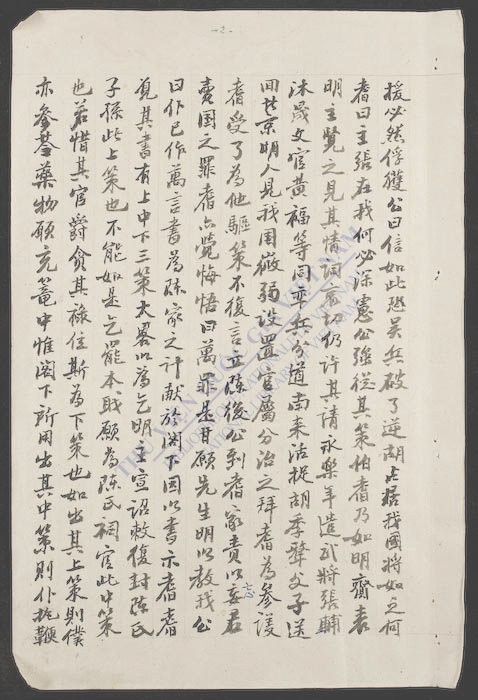 -2-
援必然俘獲公曰信如此恐吳兵破了逆胡占据我國將如之何
耆曰主張在我何必深慮公強從其策伯耆乃如明齎表
明主覽之見其情詞哀切仍許其請永樂年遣武將張輔
沐晟文官黃福等同率兵分道南来活捉胡季犛父子送
回北京明人見我国微弱設置官屬分治之拜耆為參議
耆受了為他驅策不復言立陈後公到耆家責以妄忘君
賣国之罪耆亦覺悔悟曰萬罪是甘願先生明以教我公
曰仆已作萬言書為陈家之计献於阁下因以書示耆耆
覓其書有上中下三策大畧以為乞明主宣詔敕復封陈氏
子孫此上策也不能如是乞罷本职願為陈氏祠官此中策
也若惜其官爵貪其禄位斯為下策也如出其上策則僕
亦參苓藥物願充篭中惟阁下所用出其中策則仆抱鞭